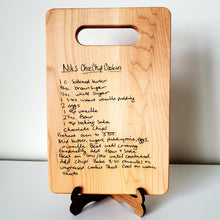 Nik's ChocChip Cookies
1 c. softened butter
3/4 c brown sugar
1/4 c white sugar
1 sm instant vanilla pudding
2 eggs
1 tsp vanilla
2 1/4 c flour
1 tsp baking soda
Chocolate Chips
Preheat oven to 375°.
Mix butter, sugar, pudding mix, eggs,
& vanilla. Beat until creamy
Gradually add flour & soda
Add Chips. Bake 8-10 minutes on
ungreased cookie sheet. Cool on wire